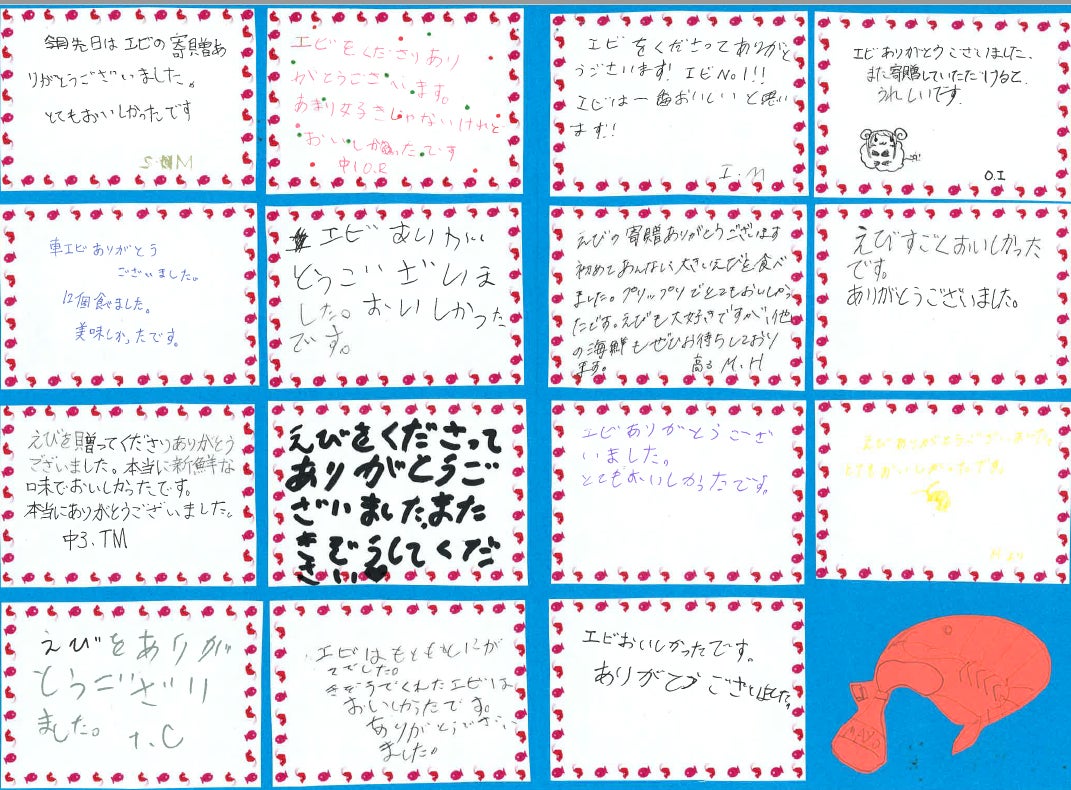 先日はエビの寄贈あ
りがとうございました。
とてもおいしかったです
エビをくださりあり
がとうございます。
あまり好きじゃないけれど
おいしかったです
中1 O.R
エビをくださってありがと
うございます! エビNo1!!
エビは一番おいしいと思い
ます!
I.M
エビありがとうございました、
また寄贈していただけると、
うれしいです。
O.I
車エビありがとう
ございました。
12個食べました。
美味しかったです。
エビ
とうございま
した。おいしかった
です。
えびの寄贈ありがとうございます
初めてあんなに大きいえびを食べ
ました。プリップリでとてもおいしかっ
たです。えびも大好きですが、他
の海鮮もぜひお待ちしており
ます。 高3 M.H
えびすごくおいしかった
です。
ありがとうございました。
えびを贈ってくださりありがとう
ございました。本当に新鮮な
味でおいしかったです。
本当にありがとうございました。
中3.TM
えびをくださって
ありがとうご
ざいました、また
きぞうしてくだ
さい♥
エビありがとうござ
いました。
とてもおいしかったです。
えびありがとうございました。
とてもおいしかったです。
えびをありが
とうござい
ました。 T.C
エビはもともとにが
てでした。
きぞうでくれたエビは
おいしかったです。
ありがとうござい
ました。
エビおいしかったです。
ありがとうございました。
MAYO